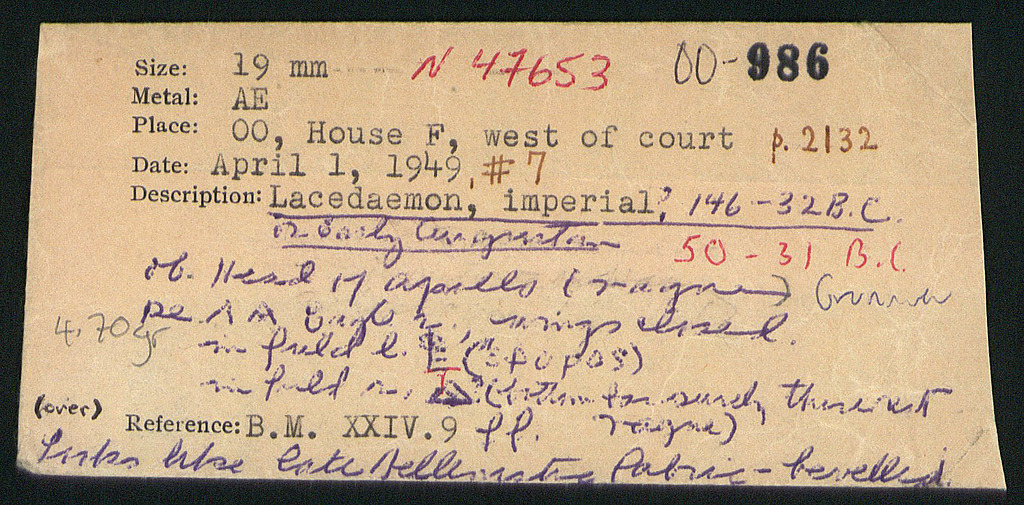 Size: 19 mm N 47653 OO-986
Metal: AE
Place: OO, House F, west of court p. 2132
Date: April 1, 1949, #7
Description: Lacedaemon, imperial?, 146-32 B.C.
or Early Augustan
50-31 B.C.
ob. Head of Apollo (vague)
re. ΛΑ Eagle r., wings closed.
4.70 gr
in field l. (εφορος)
in field r.
(over)
Reference: B.M. XXIV.9 ff. vague)
Looks like late Hellenistic fabric - bevelled.